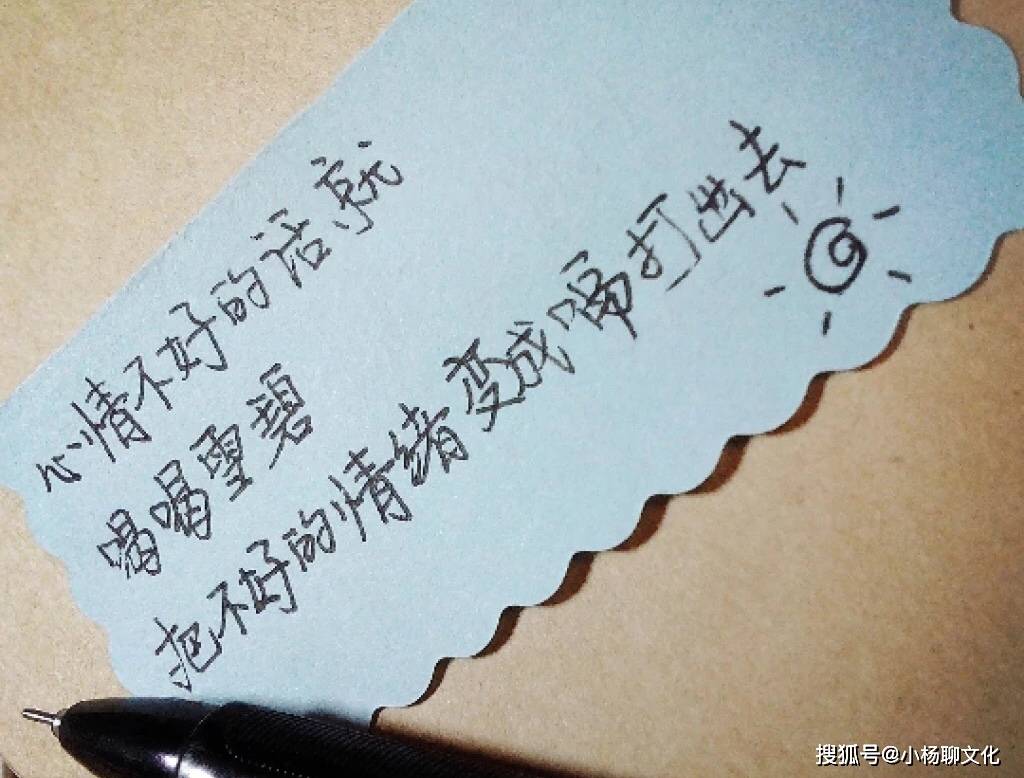 心情不好的话就
喝喝雪碧
把不好的情绪变成嗝打出去
搜狐号@小杨聊文化